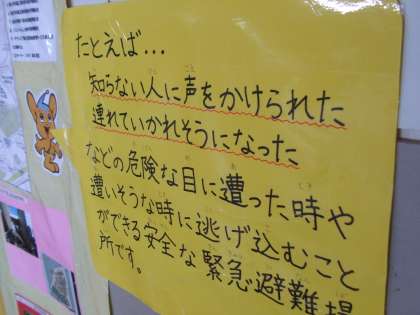 たとえば…
知らない人に声をかけられた
連れていかれそうになった
などの危険な目に遭った時や
遭いそうな時に逃げ込むこと
ができる安全な緊急避難場
所です。